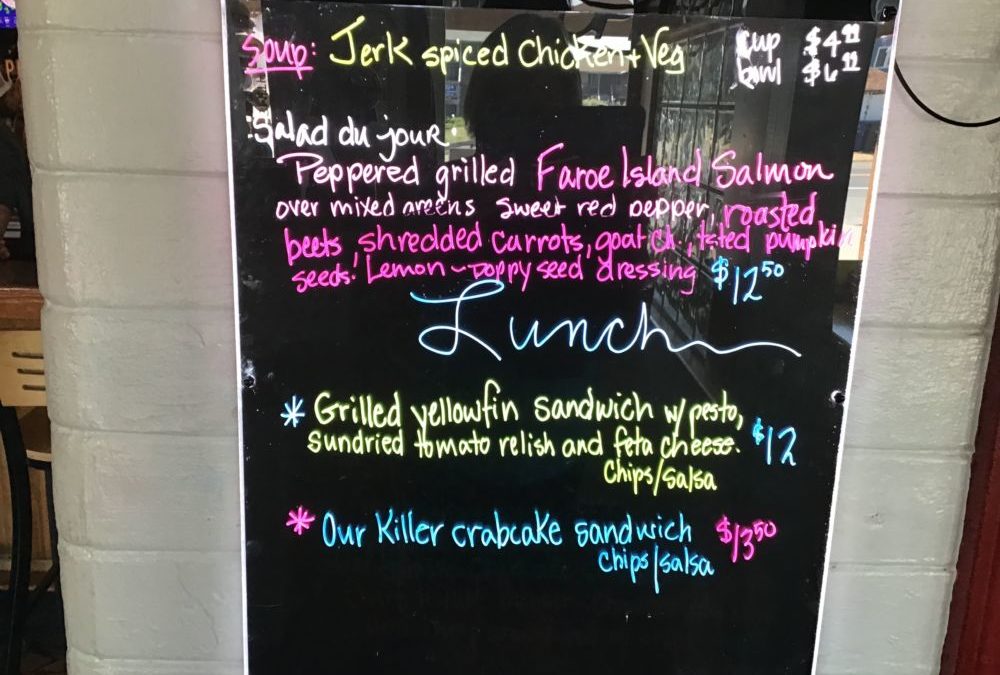 Soup: Jerk spiced Chicken + Veg cup $4.99
bowl $6.99
Salad du jour.
Peppered grilled Faroe Island Salmon
over mixed greens sweet red pepper, roasted
beets, shredded carrots, goat ch., tsted pumpkin
seeds. Lemon-poppy seed dressing $12.50
Lunch
* Grilled yellowfin sandwich w/ pesto,
sundried tomato relish and feta cheese. $12
Chips/salsa
* Our Killer crabcake sandwich $13.50
Chips/salsa